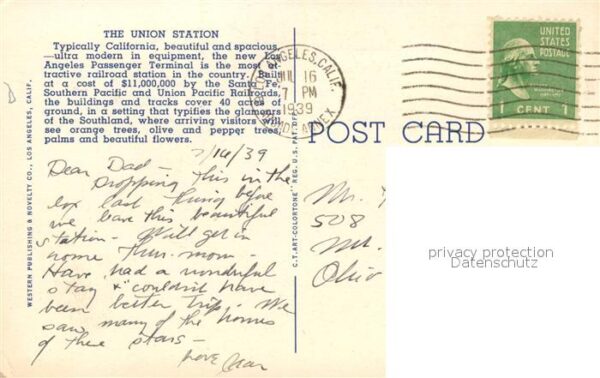 THE UNION STATION
Typically California, beautiful and spacious,
—ultra modern in equipment, the new Los
Angeles Passenger Terminal is the most at-
tractive railroad station in the country. Built
at a cost of $11,000,000 by the Santa Fe,
Southern Pacific and Union Pacific Railroads,
the buildings and tracks cover 40 acres of
ground, in a setting that typifies the glamour
of the Southland, where arriving visitors will
see orange trees, olive and pepper trees,
palms and beautiful flowers.
7/16/39
Dear Dad—
Dropping this in the
box last thing before
we leave this beautiful
station— Will get in
home Thur. morn—
Have had a wonderful
stay & couldn't have
been better trip. We
saw many of the homes
of these stars—
Love
WESTERN PUBLISHING & NOVELTY CO., LOS ANGELES, CALIF.
C.T. ART-COLORTONE REG. U.S. PAT. OFF.
LOS ANGELES, CALIF.
JUL 16
7 PM
1939
ANNEX
UNITED
STATES
POSTAGE
1 CENT 1
POST CARD
Mr.
508
Mt.
Ohio
privacy protection
Datenschutz